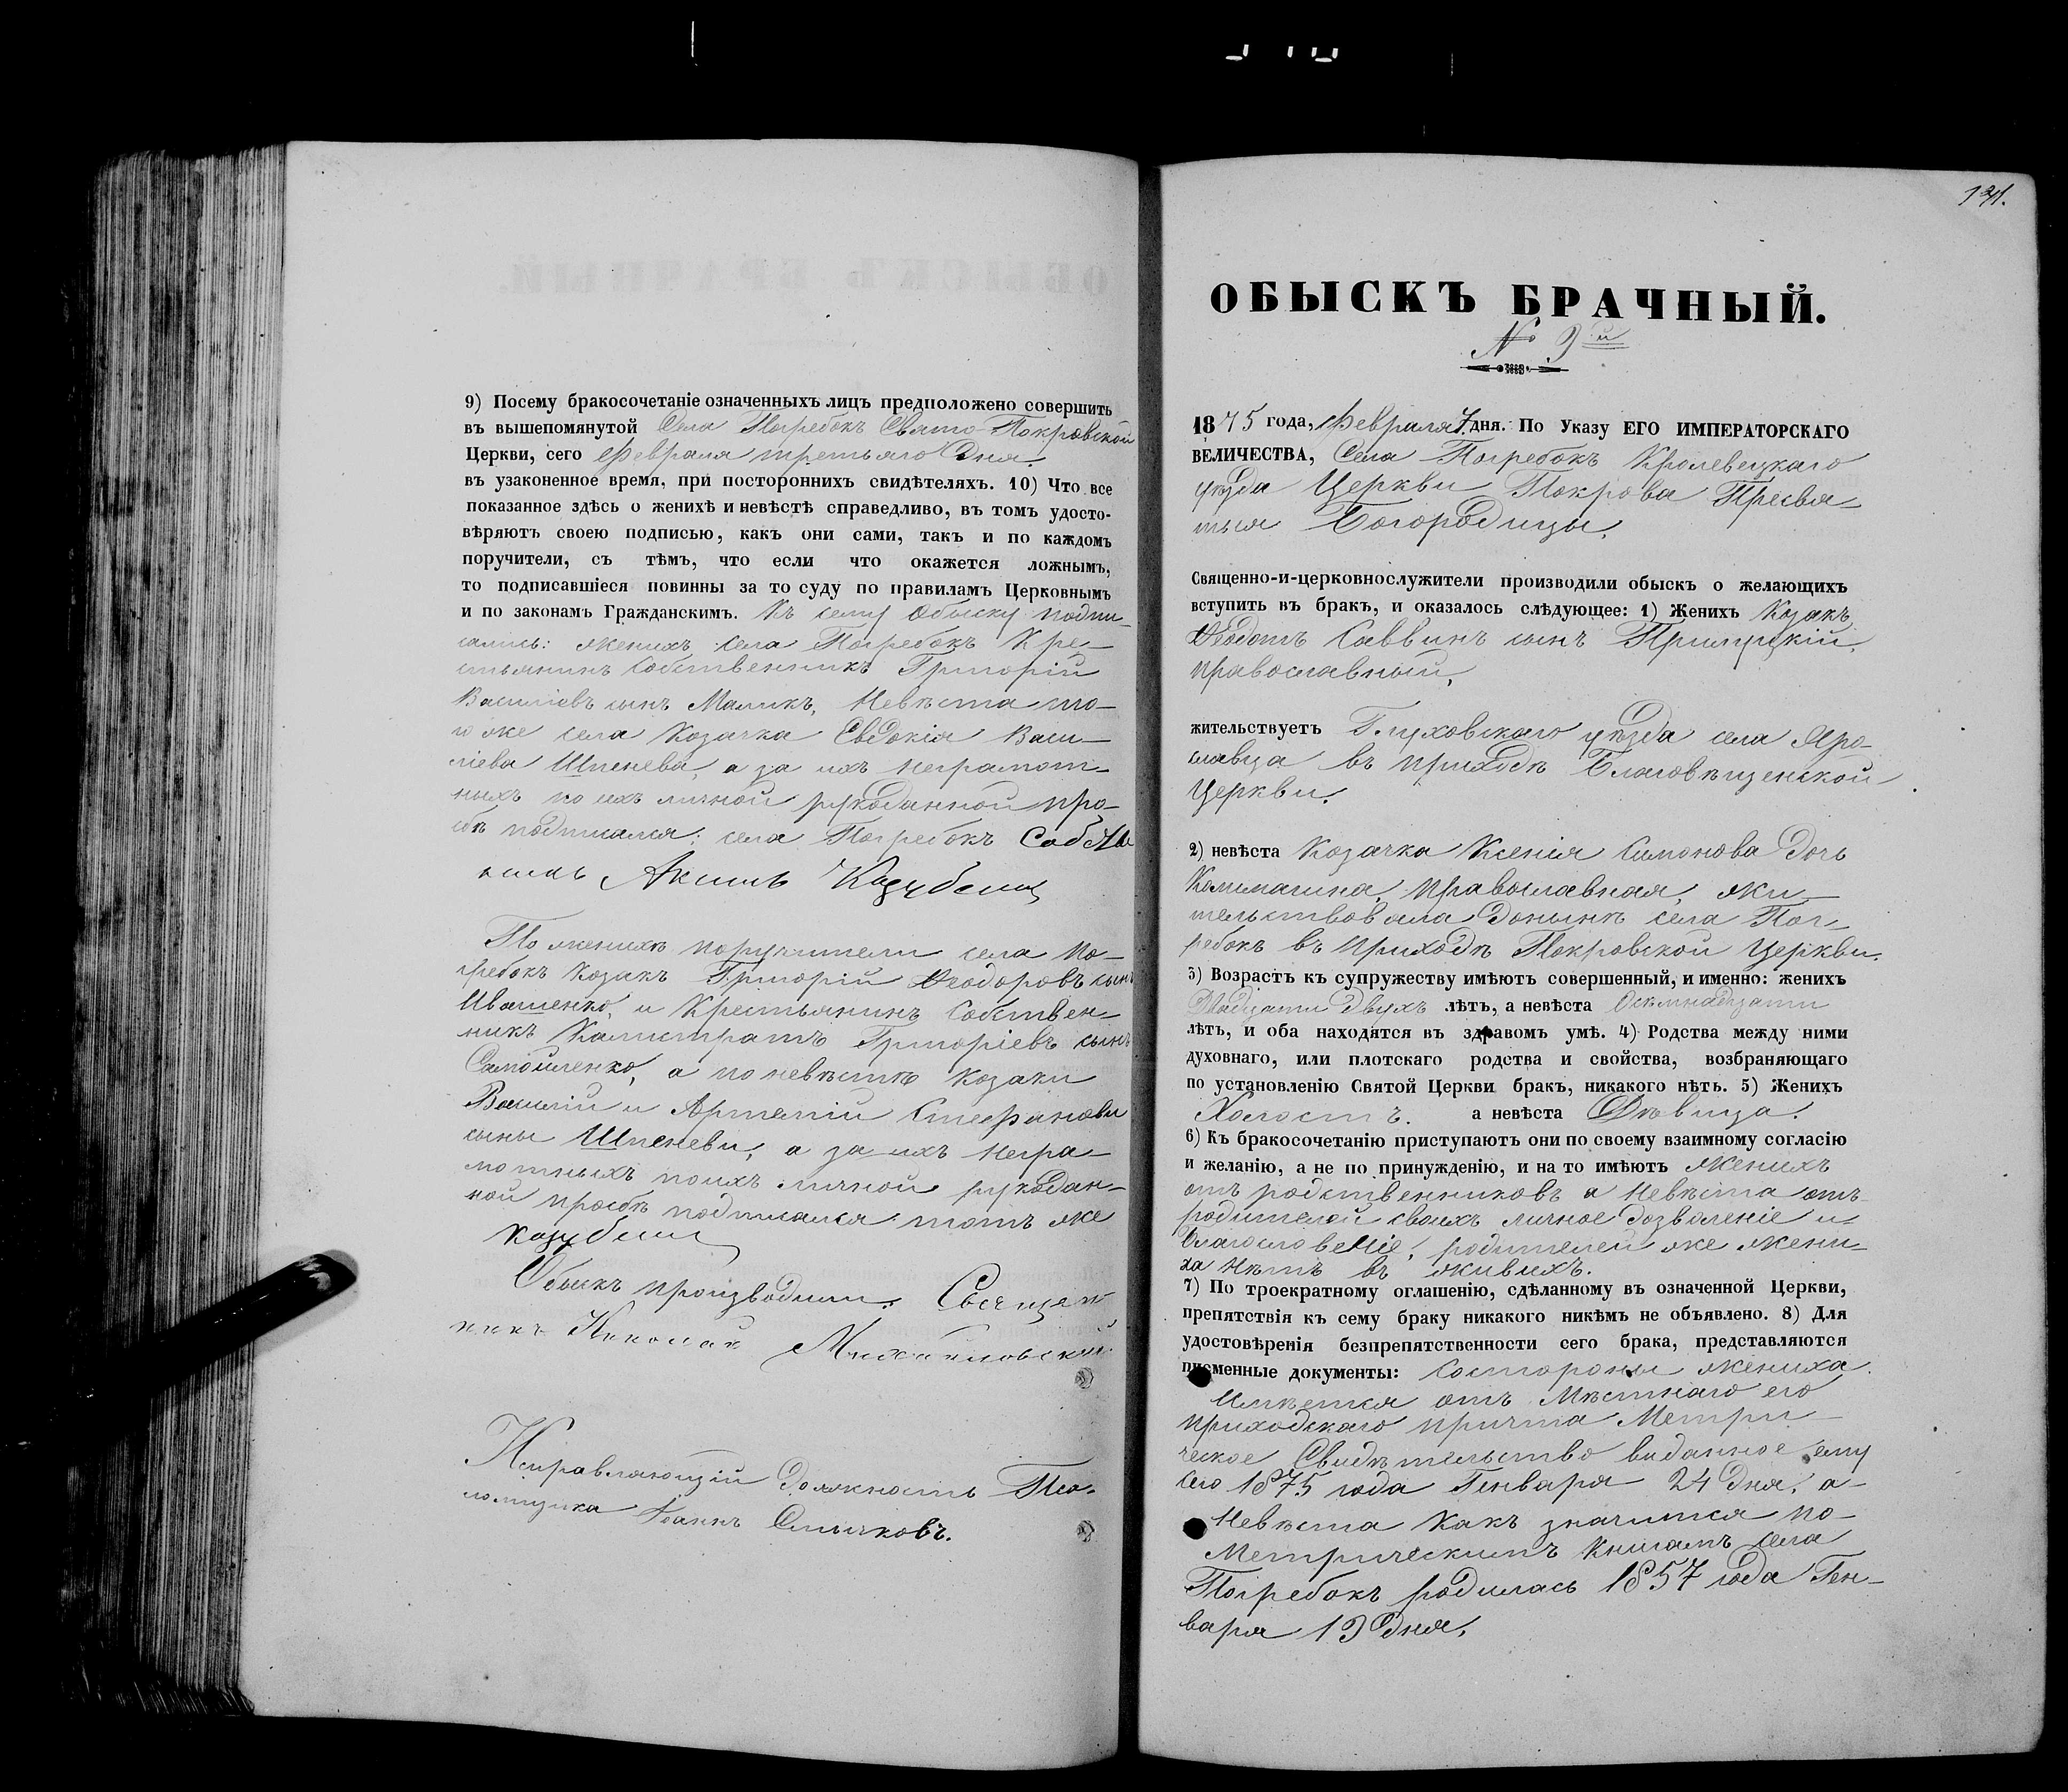 9) Посему бракосочетаніе означенныхъ лицъ предположено совершить
въ вышепомянутой Села Погребокъ Свято-Покровской
Церкви, сего Февраля третьяго Дня.
въ узаконенное время, при постороннихъ свидѣтеляхъ. 10) Что все
показанное здѣсь о женихѣ и невѣстѣ справедливо, въ томъ удосто-
вѣряютъ своею подписью, какъ они сами, такъ и по каждомъ
поручители, съ тѣмъ, что если что окажется ложнымъ,
то подписавшіеся повинны за то суду по правиламъ Церковнымъ
и по законамъ Гражданскимъ. Къ сему обыску подпи-
сались: женихъ села Погребокъ Кре-
стьянинъ собственникъ Григорій
Василіевъ сынъ Маликъ, Невѣста то-
го же села Козачка Евдокія Васи-
ліева Шпенева, а за ихъ неграмот-
ныхъ по ихъ личной рукоданной про-
сбѣ подписался: села Погребокъ Собстве
Акимъ
По женихѣ поручители села По-
гребокъ Козакъ Григорій Ѳеодоровъ сынъ
Иващенко, и Крестьянинъ Собствен-
никъ Калистратъ Григоріевъ сынъ
Самойленко, а по невѣстѣ Козаки
Василій и Артемій Стефанови
сыны Шпеневи, а за ихъ негра-
мотныхъ по ихъ личной рукодан-
ной просбѣ подписался тотъ же
Обыскъ производили: Священ
никъ Николай Михайловскій.
Исправляющій Должность Пса-
ломщика Іоаннъ Смычковъ.
131.
ОБЫСКЪ БРАЧНЫЙ.
№ 9й
1875 года, Февраля 7. дня. По Указу ЕГО ИМПЕРАТОРСКАГО
ВЕЛИЧЕСТВА, Села Погребокъ Кролевецкаго
уѣзда Церкви Покрова Пресвя-
тыя Богородицы.
Священно-и-церковнослужители производили обыскъ о желающихъ
вступить въ бракъ, и оказалось слѣдующее: 1) Женихъ Козакъ
Ѳеодотъ Саввинъ сынъ Прилуцкій,
православный,
жительствуетъ Глуховскаго уѣзда села Яро-
славца въ приходѣ Благовѣщенской
Церкви.
2) невѣста Козачка Ксенія Симонова дочь
православная, жи-
тельствовала Донынѣ села Пог-
ребокъ въ приходѣ Покровской Церкви.
3) Возрастъ къ супружеству имѣютъ совершенный, и именно: женихъ
Двадцати двухъ лѣтъ, а невѣста Осьмнадцати
лѣтъ, и оба находятся въ здравомъ умѣ. 4) Родства между ними
духовнаго, или плотскаго родства и свойства, возбраняющаго
по установленію Святой Церкви бракъ, никакого нѣтъ. 5) Женихъ
Холостъ. а невѣста Дѣвица.
6) Къ бракосочетанію приступаютъ они по своему взаимному согласію
и желанію, а не по принужденію, и на то имѣютъ Женихъ
отъ родственниковъ а Невѣста отъ
родителей своихъ личное дозволеніе и
благословеніе, родителей же жени-
ха нѣтъ въ живыхъ.
7) По троекратному оглашенію, сдѣланному въ означенной Церкви,
препятствія къ сему браку никакого никѣмъ не объявлено. 8) Для
удостовѣренія безпрепятственности сего брака, представляются
писменные документы: Состороны жениха
Имѣется отъ Мѣстнаго его
приходскаго причта Метри-
ческое Свидѣтельство виданное ему
сего 1875 года Генваря 24 Дня, а-
Невѣста Какъ значится по-
Метрическимъ Книгамъ села
Погребокъ родилась 1857 года Ген-
варя 19 Дня,